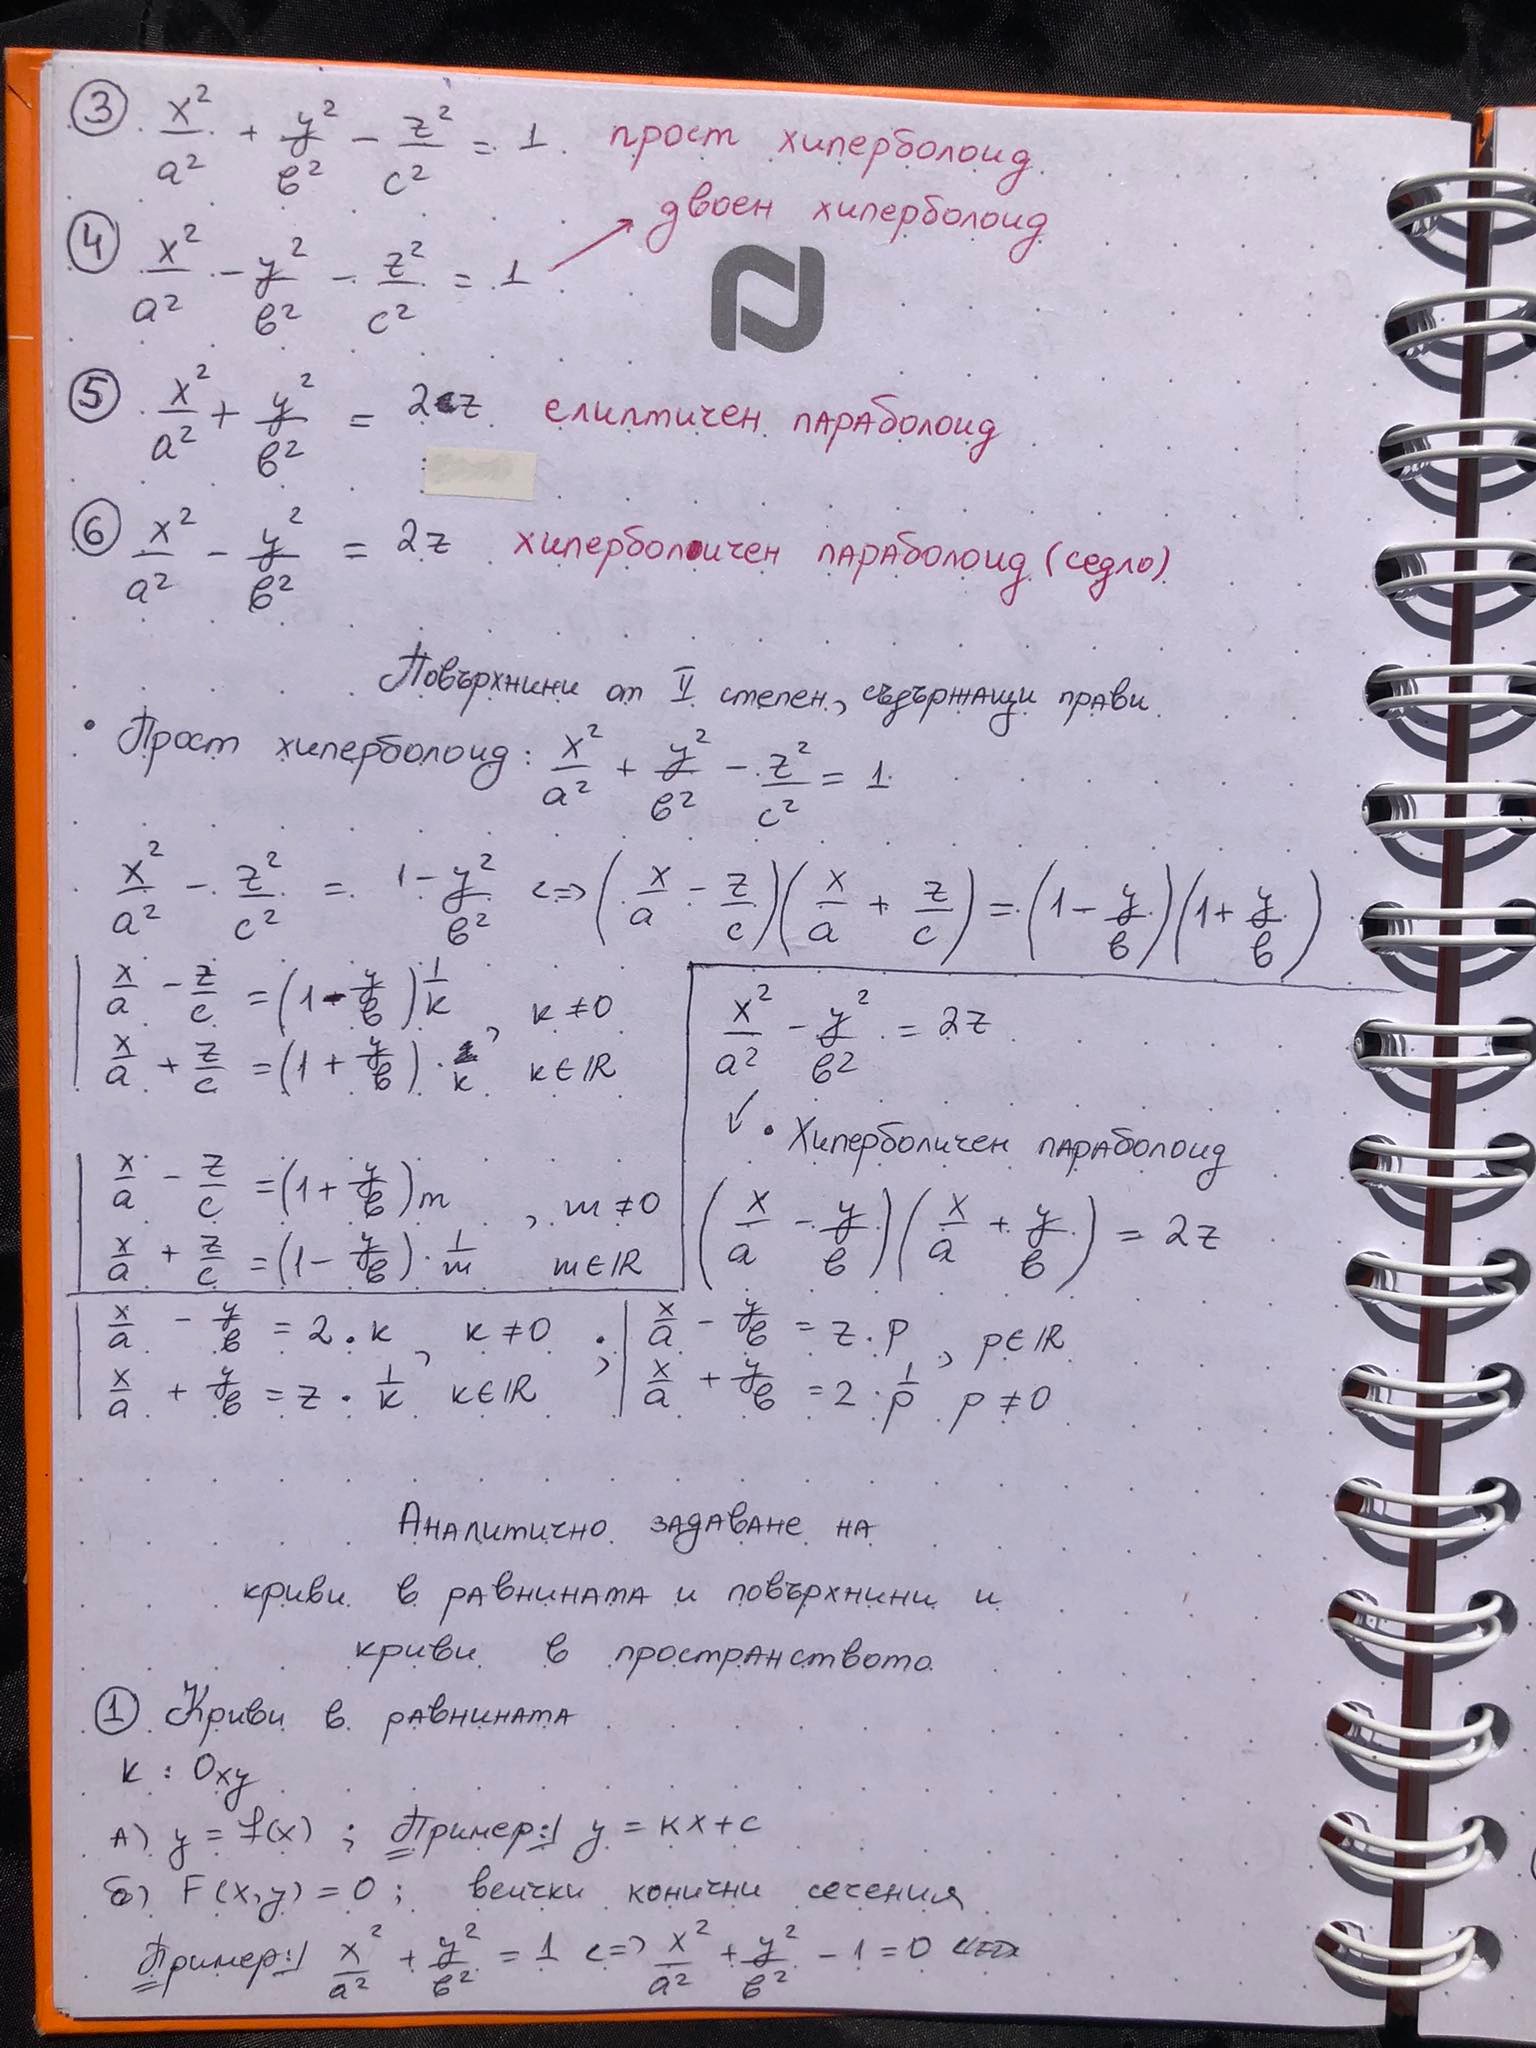 ③ x²/a² + y²/в² − z²/c² = 1 прост хиперболоид
двоен хиперболоид
④ x²/a² − y²/в² − z²/c² = 1
⑤ x²/a² + y²/в² = 2z елиптичен параболоид
⑥ x²/a² − y²/в² = 2z хиперболичен параболоид (седло)
Повърхнини от II степен, съдържащи прави
• Прост хиперболоид: x²/a² + y²/в² − z²/c² = 1
x²/a² − z²/c² = 1 − y²/в² <=> (x/a − z/c)(x/a + z/c) = (1 − y/в)(1 + y/в)
x/a − z/c = (1 − y/в) 1/k, k ≠ 0
x/a + z/c = (1 + y/в) · k k ∈ ℝ
x/a − z/c = (1 + y/в) m, m ≠ 0
x/a + z/c = (1 − y/в) · 1/m m ∈ ℝ
x²/a² − y²/в² = 2z
✓ • Хиперболичен параболоид
(x/a − y/в)(x/a + y/в) = 2z
x/a − y/в = 2 · k, k ≠ 0
x/a + y/в = z · 1/k k ∈ ℝ
; x/a − y/в = z · p, p ∈ ℝ
x/a + y/в = 2 · 1/p p ≠ 0
Аналитично задаване на
криви в равнината и повърхнини и
криви в пространството
① Криви в равнината
к : Oxy
А) y = f(x) ; Пример:/ y = kx + c
б) F(x,y) = 0 ; всички конични сечения
Пример:/ x²/a² + y²/в² = 1 <=> x²/a² + y²/в² − 1 = 0